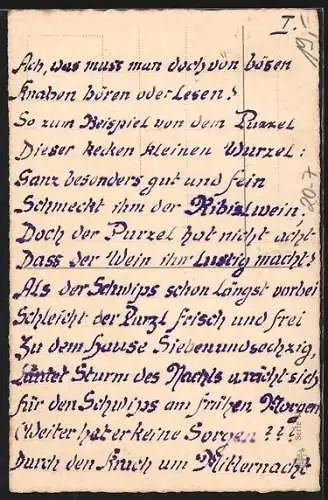 I.
Ach, was muss man doch von bösen
Knaben hören oder lesen!
So zum Beispiel von dem Purzel
Dieser kecken kleinen Wurzel:
Ganz besonders gut und fein
Schmeckt ihm der Ribislwein,
Doch der Purzel hat nicht acht
Dass der Wein ihn lustig macht!
Als der Schwips schon längst vorbei
Schleicht der Purzl frisch und frei
Zu dem Hause Siebenundsechzig,
läutet Sturm des Nachts u. rächt sich
für den Schwips am frühen Morgen
(Weiter hat er keine Sorgen ???
Durch den Krach um Mitternacht
20-7